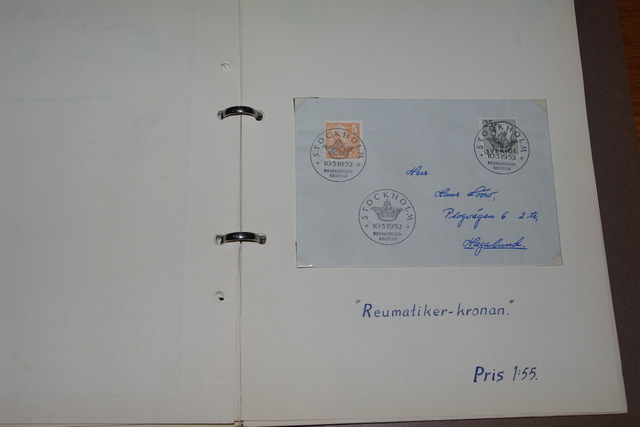 STOCKHOLM
10·3·1952
REUMATIKER-
KRONAN
25
STOCKHOLM
SVERIGE
10·3·1952
REUMATIKER-
KRONAN
STOCKHOLM
10·3·1952
REUMATIKER-
KRONAN
Herr
Hans Lööw,
Plogvägen 6 2.tr,
Hagalund.
"Reumatiker-kronan."
Pris 1:55.